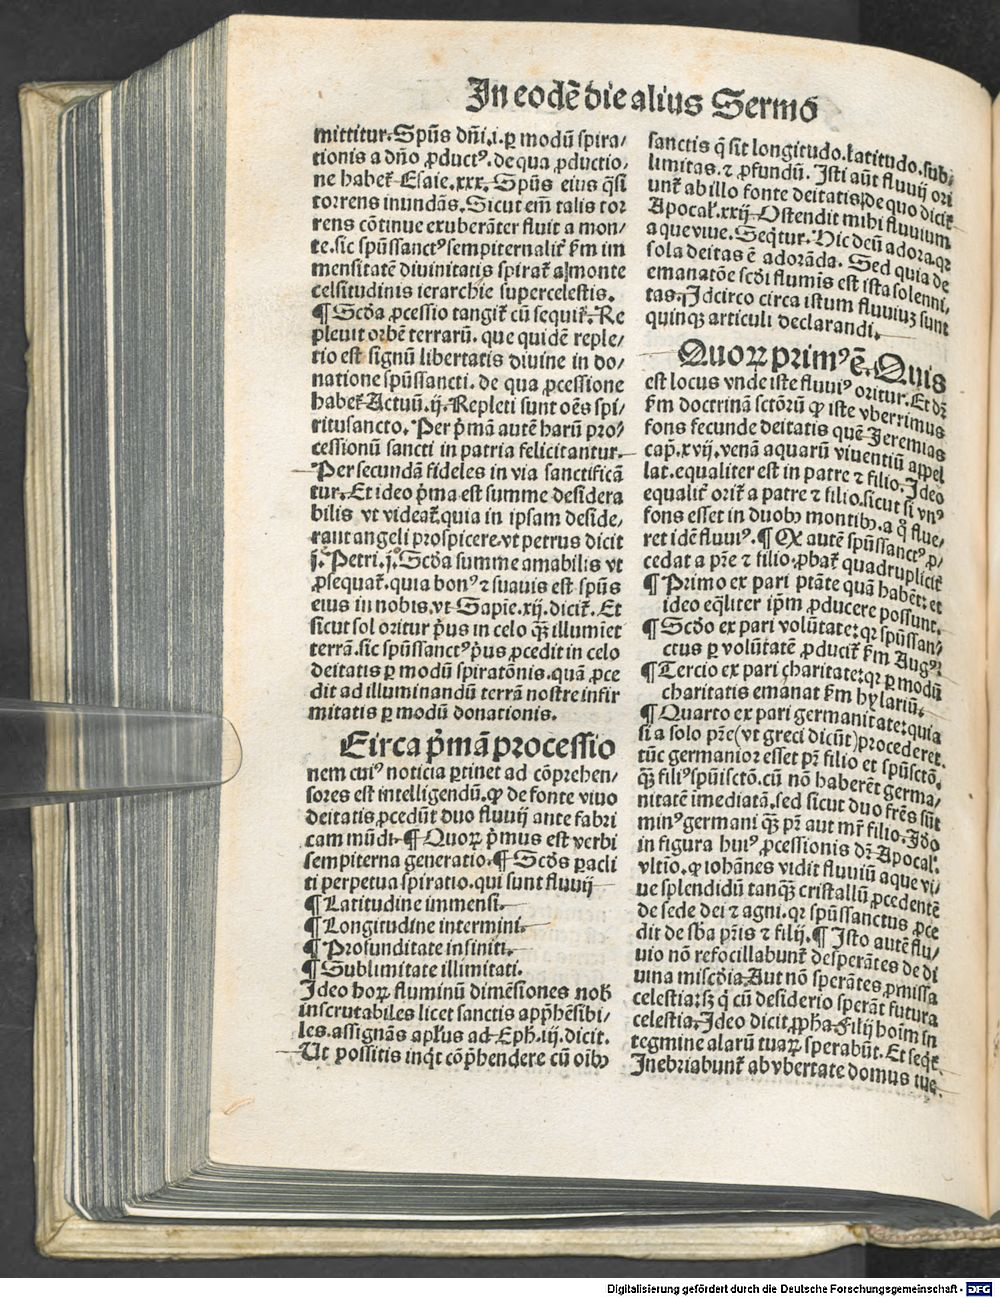 In eodē die alius Sermo
mittitur. Spūs dn̄i .i. ꝑ modū spira⸗
tionis a dn̄o ꝓductꝰ. de qua ꝓductio⸗
ne habet᷑ Esaie .xxx. Spūs eius q̄si
torrens inundās. Sicut em̄ talis tor
rens cōtinue exuberāter fluit a mon⸗
te. sic spūssanctꝰ sempiternalit᷑ ẜm im
mensitatē diuinitatis spirat᷑ a monte
celsitudinis ierarchie supercelestis.
¶ Scd̄a ꝓcessio tangit᷑ cū sequit᷑. Re
pleuit orbē terrarū. que quidē reple⸗
tio est signū libertatis diuine in do⸗
natione spūssancti. de qua ꝓcessione
habet᷑ Actuū .ij. Repleti sunt oēs spi⸗
ritusancto. Per p̄mā autē harū pro⸗
cessionū sancti in patria felicitantur.
Per secundā fideles in via sanctificā
tur. Et ideo p̄ma est summe desidera
bilis vt videat᷑. quia in ipsam deside⸗
rant angeli prospicere. vt petrus dicit
j. Petri .j. Scd̄a summe amabilis vt
ꝓsequat᷑. quia bonꝰ ⁊ suauis est spūs
eius in nobis. vt Sapie .xij. dicit᷑. Et
sicut sol oritur p̄us in celo qꝫ illumīet
terrā. sic spūssanctꝰ p̄us ꝓcedit in celo
deitatis ꝑ modū spiratōnis. quā ꝓce
dit ad illuminandū terrā nostre infir
mitatis ꝑ modū donationis.
Circa p̄mā processio
nem cuiꝰ noticia ꝑtinet ad cōprehen⸗
sores est intelligendū. ꝙ de fonte viuo
deitatis ꝓcedūt duo fluuij ante fabri
cam mūdi. ¶ Quoꝝ p̄mus est verbi
sempiterna generatio. ¶ Scd̄s ꝑacli
ti perpetua spiratio. qui sunt fluuij
¶ Latitudine immensi.
¶ Longitudine intermini.
¶ Profunditate infiniti.
¶ Sublimitate illimitati.
Ideo hoꝝ fluminū dimēsiones nob̄
inscrutabiles licet sanctis app̄hēsibi⸗
les. assignās apl̄us ad Eph. iij. dicit.
Ut possitis inq̇t cōp̄hendere cū oībꝫ
sanctis q̄ sit longitudo. latitudo. sub⸗
limitas. ⁊ ꝓfundū. Isti aūt fluuij ori
unt᷑ ab illo fonte deitatis de quo dicit᷑
Apocal̄. xxij. Ostendit mihi fluuium
aque viue. Seq̄tur. Hic deū adora. qꝛ
sola deitas ē adorāda. Sed quia de
emanatōe scd̄i flumīs est ista solenni⸗
tas. Idcirco circa istum fluuiuꝫ sunt
quinqꝫ articuli declarandi.
Quoꝝ primꝰ ē. Quis
est locus vnde iste fluuiꝰ oritur. Et dꝛ
ẜm doctrinā sctōrū ꝙ iste vberrimus
fons fecunde deitatis quē Jeremias
cap. xvij. venā aquarū viuentiū appel
lat. equaliter est in patre ⁊ filio. Ideo
equalit᷑ orit᷑ a patre ⁊ filio. sicut si vnꝰ
fons esset in duobꝫ montibꝫ. a q̊ flue⸗
ret idē fluuiꝰ. ¶ Qꝙ autē spūssanctꝰ ꝓ⸗
cedat a pr̄e ⁊ filio. ꝓbat᷑ quadruplicit᷑
¶ Primo ex pari ptāte quā habēt: et
ideo eq̄liter ip̄m ꝓducere possunt.
¶ Scd̄o ex pari volūtate: qꝛ spūssan⸗
ctus ꝑ volūtatē ꝓducit᷑ ẜm Augꝰ:
¶ Tercio ex pari charitate: qꝛ ꝑ modū
charitatis emanat ẜm hylariū.
¶ Quarto ex pari germanitate: quia
si a solo pr̄e (vt greci dicūt) procederet.
tūc germanior esset pr̄ filio et spūsctō.
qꝫ filiꝰ spūisctō. cū nō haberēt germa⸗
nitatē īmediatā. sed sicut duo fr̄es sūt
minꝰ germani qꝫ pr̄ aut mr̄ filio. Iō
in figura huiꝰ ꝓcessionis dꝛ Apocal̄.
vltīo. ꝙ iohānes vidit fluuiū aque vi⸗
ue splendidū tanqꝫ cristallū ꝓcedentē
de sede dei ⁊ agni. qꝛ spūssanctus ꝓce
dit de sb̄a pr̄is ⁊ filij. ¶ Isto autē flu⸗
uio nō refocillabunt᷑ desperātes de di
uina miscd̄ia. Aut nō sperātes ꝓmissa
celestia: sꝫ q̇ cū desiderio sperāt futura
celestia. Ideo dicit ꝓph̄a. Filij hoīm in
tegmine alarū tuaꝝ sperabūt. Et seqt᷑.
Inebriabunt᷑ ab vbertate domus tue.
Digitalisierung gefördert durch die Deutsche Forschungsgemeinschaft - DFG